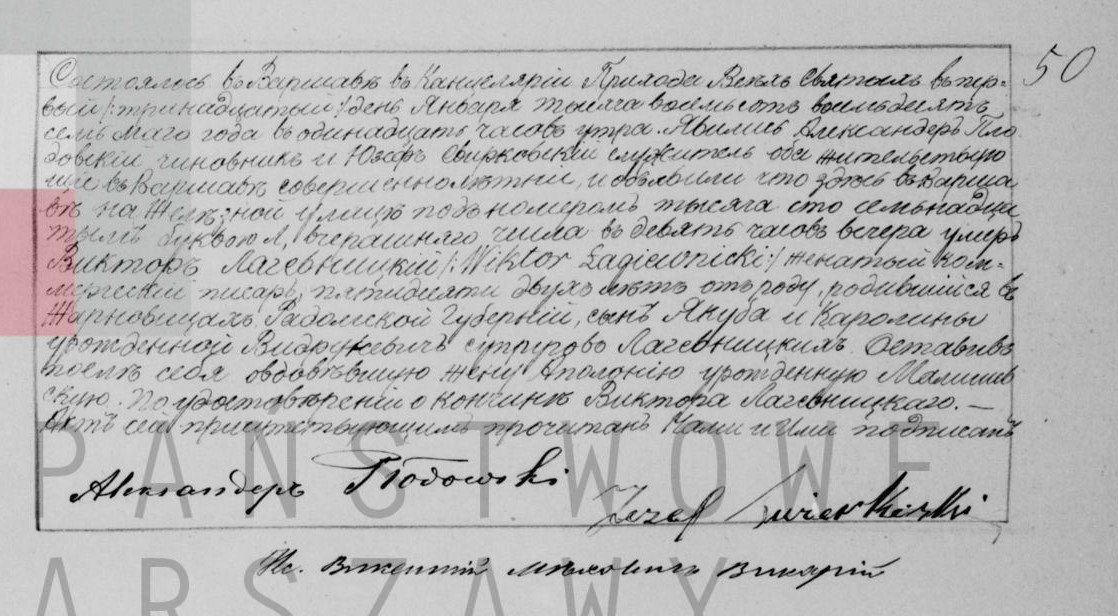 50
Состоялось въ Варшавѣ въ Канцелярiи Прихода Всѣхъ Святыхъ въ пер-
вый /:тринадцатый:/ день Января тысяча восемьсотъ восемьдесятъ
седьмаго года въ одинадцать часовъ утра. Явились Александеръ Пло
довскiй чиновникъ и Юзефъ Свирковскiй служитель оба жительствую
щiе въ Варшавѣ совершеннолѣтнiи, и объявили что здѣсь въ Варша
вѣ на Желѣзной улицѣ подъ номеромъ тысяча сто семьнадца
тымъ буквою Л, вчерашняго числа въ девять часовъ вечера умеръ
Викторъ Лагевницкiй /:Wiktor Łagiewnicki:/ женатый ком-
мерческiй писарь, пятидесяти двухъ лѣтъ отъ роду, родившiйся въ
Жарновицахъ Радомской Губернiи, сынъ Якуба и Каролины
урожденной супруговъ Лагевницкихъ. Оставивъ
послѣ себя овдовѣвшую жену Аполонiю урожденную Малишев
скую. По удостовѣренiи о кончинѣ Виктора Лагевницкаго. —
Актъ сей присутствующимъ прочитанъ Нами и Ими подписанъ
Александеръ Płodowski
Józef Świerkowski
Кс. Викентiй Викарiй
PAŃSTWOWE
ARSZAWY